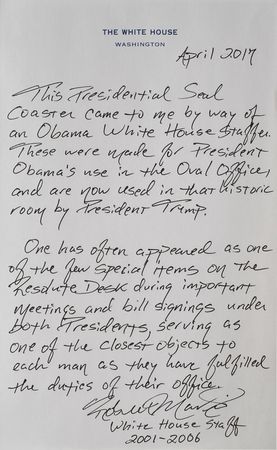 THE WHITE HOUSE
WASHINGTON
April 2017
This Presidential Seal
Coaster came to me by way of
an Obama White House Staffer.
These were made for President
Obama's use in the Oval Office,
and are now used in that historic
room by President Trump.
One has often appeared as one
of the few special items on the
Resolute Desk during important
meetings and bill signings under
both Presidents, serving as
one of the closest objects to
each man as they have fulfilled
the duties of their office.
White House Staff
2001-2006